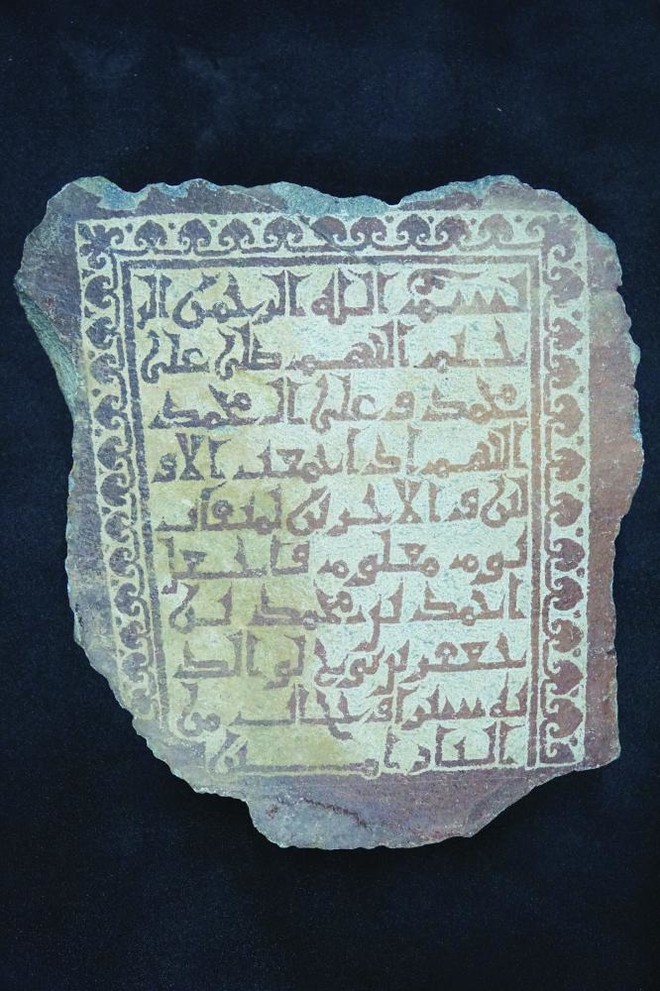 بسم الله الرحمن الر
حيم اللهم صل على
محمد و على ال محمد
اللهم اذا جمعت الاو
لين و الاخرين لميقات
يوم معلوم فاجعل
احمد بن محمد بن
جعفر بن لوالد
يه سترا و حجابا من
النار امين